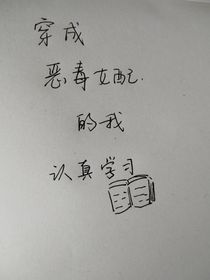 穿成
恶毒女配
的我
认真学习